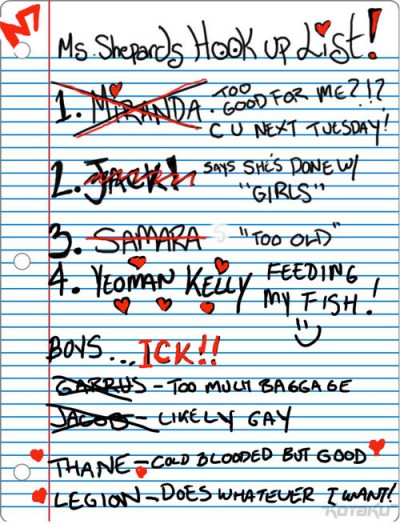 N7
Ms. Shepards Hook up List!
1. MiRANDA. TOO
GOOD FOR ME?!?
C U NEXT TUESDAY!
2. JACK! SAYS SHE'S DONE W/
"GIRLS"
3. SAMARA "TOO OLD"
4. YEOMAN KELLY FEEDING
MY FISH!
BOYS... ICK!!
GARRUS - TOO MUCH BAGGAGE
JACOB - LIKELY GAY
THANE - COLD BLOODED BUT GOOD
LEGION - DOES WHATEVER I WANT!
KOTAKU